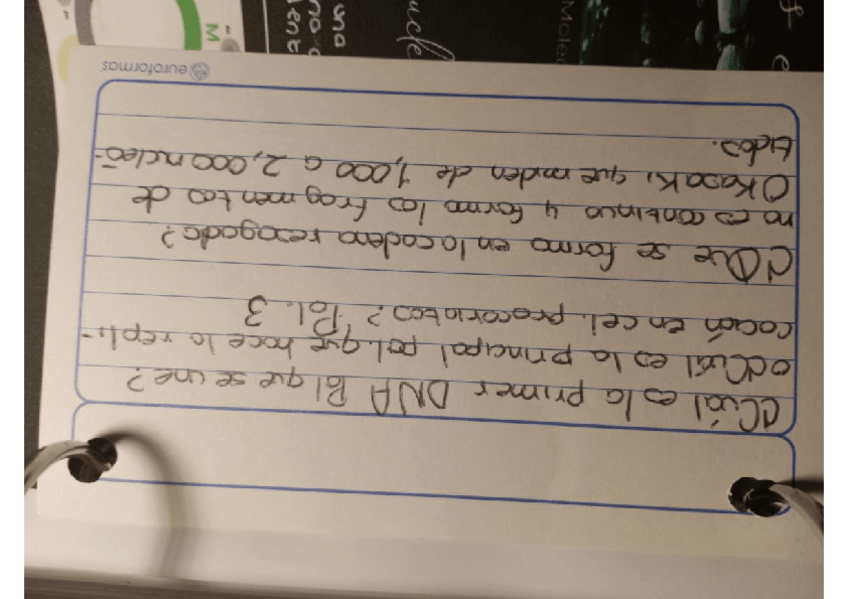 ¿Cuál es la primer DNA Pol que se une?
o ¿Cuál es la principal pol. que hace la repli-
cación en cel. procariotas? Pol. 3
¿Que se forma en la cadena rezagada?
no es continua y forma los fragmentos de
Okasaki, que miden de 1,000 a 2,000 nucleó-
tidos.
euroformas
ucle
una
M